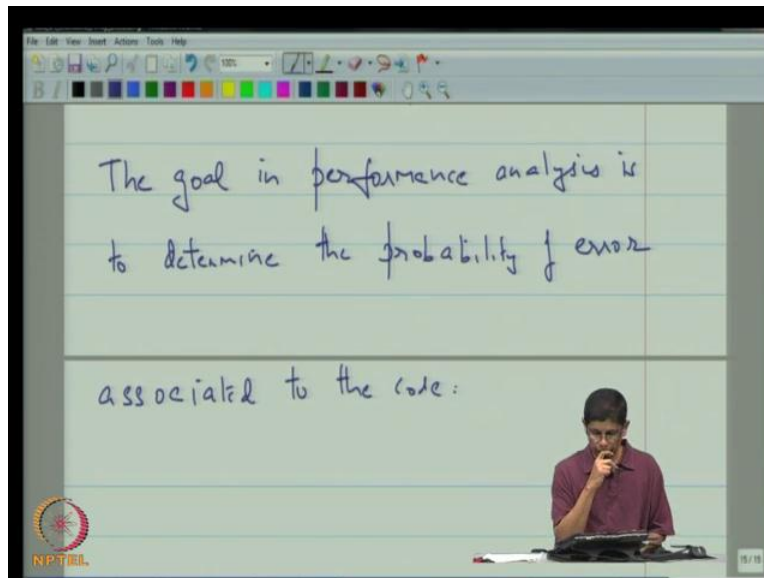 File Edit View Insert Actions Tools Help
100%
B I
The goal in performance analysis is
to determine the probability of error
associated to the code:
NPTEL
15/15